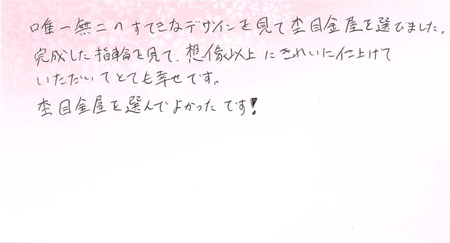 唯一無二のすてきなデザインを見て杢目金屋を選びました。
完成した指輪を見て、想像以上にきれいに仕上げて
いただいてとても幸せです。
杢目金屋を選んでよかったです!